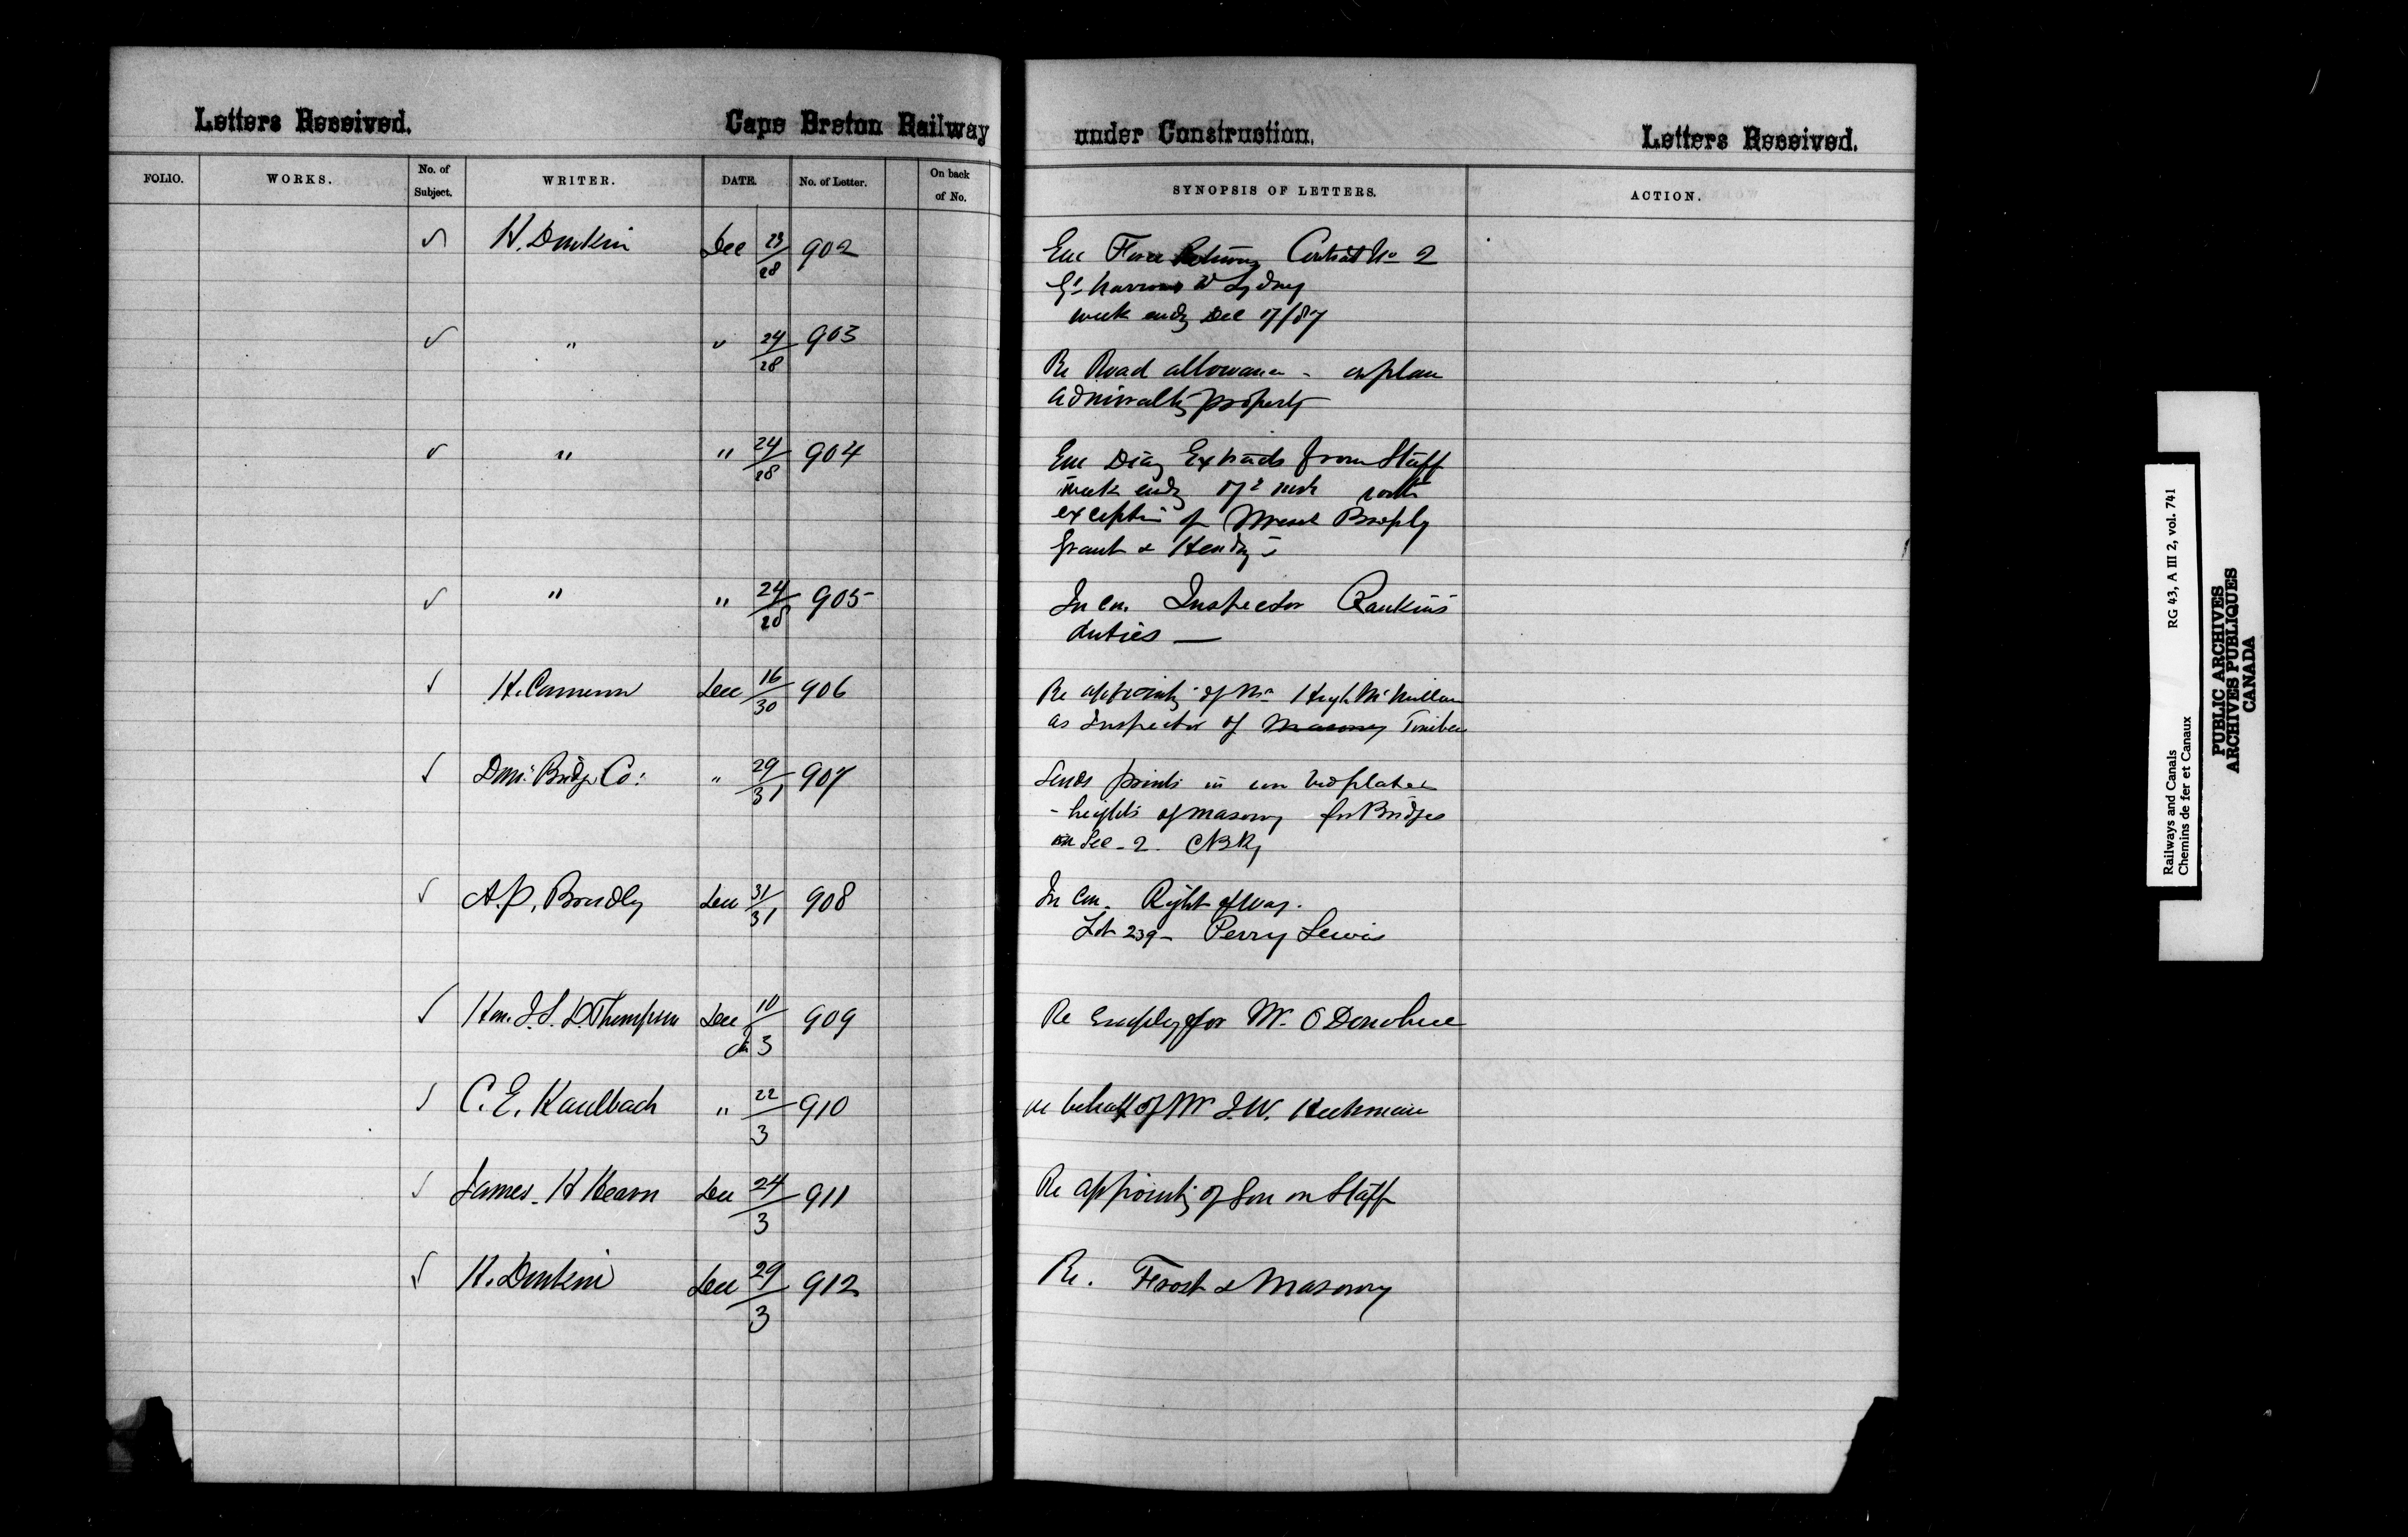 Letters Received. Cape Breton Railway under Construction. Letters Received.
FOLIO. WORKS. No. of Subject. WRITER. DATE. No. of Letter. On back of No. SYNOPSIS OF LETTERS. ACTION.
✓ H. Donkin Dec 23/28 902 Enc Force Returns Contract No 2
Gd Narrows to Sydney
week endg Dec 17/87
✓ " " 24/28 903
Re Road allowance - on plan
Admiralty property
✓ " " 24/28 904 Enc Diary Extracts from Staff
week endg 17th inst with
exception of Messrs Brophy
Grant & Hendry's
✓ " " 24/28 905 In con. Inspector Rankin's
duties —
✓ H. Cameron Dec 16/30 906 Re appointg of Mr Hugh McMillan
as Inspector of Masonry Timber
✓ Dom: Bridge Co: " 29/31 907 Sends prints in con bedplates
- heights of masonry for Bridges
on Sec - 2. CBRy
✓ A.P. Bradley Dec 31/31 908 In con. Right of way.
Lot 239 - Perry Lewis
✓ Hon. J.S.D. Thompson Dec 10/Jan 3 909 Re Employ for Mr. O'Donohue
✓ C. E. Kaulbach " 22/3 910 on behalf of Mr J.W. Heckman
✓ James H Hearn Dec 24/3 911 Re appointg of Son on Staff
✓ H. Donkin Dec 29/3 912 Re. Frost & Masonry
Railways and Canals RG 43, A III 2, vol. 741
Chemins de fer et Canaux
PUBLIC ARCHIVES
ARCHIVES PUBLIQUES
CANADA